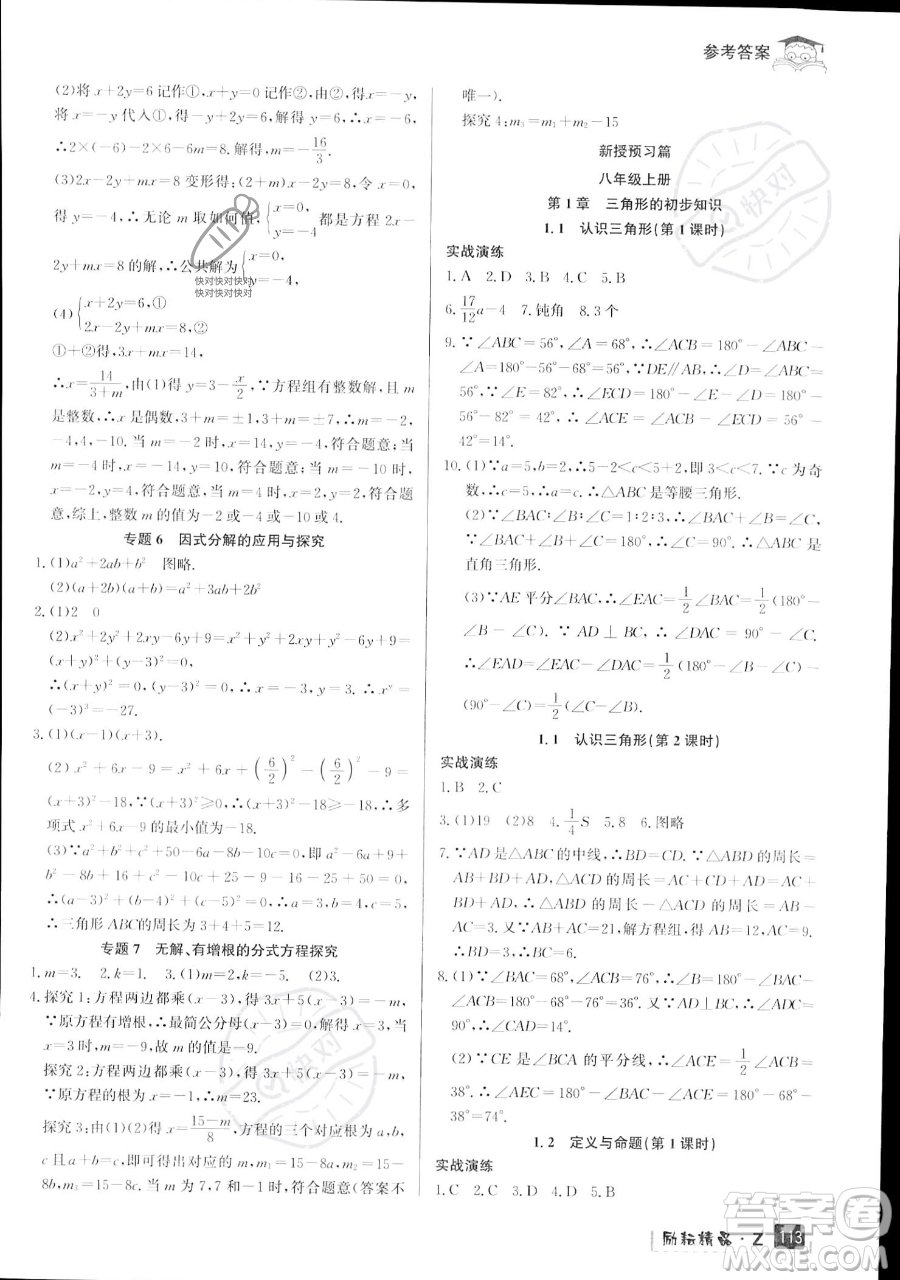 参考答案
(2)将 x+2y=6 记作①，x+y=0 记作②，由②，得 x=-y，
将 x=-y 代入①，得-y+2y=6，解得 y=6，∴x=-6，
∴2×(-6)-2×6-6m+8=0. 解得，m=-16/3.
(3)2x-2y+mx=8 变形得：(2+m)x-2y=8，令 x=0，
得 y=-4，∴无论 m 取如何值，{x=0, y=-4 都是方程 2x-
2y+mx=8 的解，∴公共解为{x=0, y=-4.
快对快对快对快对
快对快对快对快对
(4){x+2y=6,① 2x-2y+mx=8,②
①+②，得，3x+mx=14，
∴x=14/(3+m)，由(1)得 y=3-x/2，∵方程组有整数解，且 m
是整数，∴x 是偶数，3+m=±1，3+m=±7，∴m=-2，
-4，4，-10. 当 m=-2 时，x=14，y=-4，符合题意；当
m=-4 时，x=-14，y=10，符合题意；当 m=4 时，x=
2，y=2，符合题意；当 m=-10 时，x=-2，y=4，符合题
意，综上，整数 m 的值为-2 或-4 或 4 或-10.
专题 6 因式分解的应用与探究
1. (1)a²+2ab+b² 图略.
(2)(a+2b)(a+b)=a²+3ab+2b²
2. (1)2 0
(2)x²+2y²+2xy-6y+9=x²+y²+2xy+y²-6y+9=
(x+y)²+(y-3)²=0，∴x+y=0，y-3=0，∴x=-3，y=3，
∴(x+y)²=0，(y-3)²=0，∴y=3，x=-3，∴xʸ=
(-3)³=-27.
3. (1)(x-1)(x-3).
(2) x²+6x-9=x²+6x+(6/2)²-(6/2)²-9=
(x+3)²-18，∵(x+3)²≥0，∴(x+3)²-18≥-18，∴多
项式 x²+6x-9 的最小值为-18.
(3)∵a²+b²+c²+50=6a+8b+10c，即 a²-6a+9+b²
-8b+16+c²-10c+25=0，∴(a-3)²+(b-4)²+
(c-5)²=0，∴a-3=0，b-4=0，c-5=0，∴a=3，b=4，c=5，
∴三角形 ABC的周长为 3+4+5=12.
专题 7 无解、有增根的分式方程探究
1. m=3. 2. k=1. 3. (1)m=4，k=-5. (2)3.
4. 探究 1：方程两边都乘(x-3)，得 3x+5(x-3)=-m，
∵原方程有增根，∴最简公分母(x-3)=0，解得 x=3，当
x=3 时，m=-9，故 m 的值是-9.
探究 2：方程两边都乘(x-3)，得 3x+5(x-3)=-m，
∵原方程的根为 x=-1，∴m=23.
探究 3：由(1)(2)得 x=(15-m)/8，方程的三个对应根为 a、b、
c 且 a+b=c，即可写出对应的 m₁=15-8a，m₂=15-
8b，m₃=15-8c，当 m 为 7，7 和-1 时，符合题意(答案不
唯一).
探究 4：m₃=m₁+m₂-15
新授预习篇
八年级上册
第 1 章 三角形的初步知识
1.1 认识三角形(第 1 课时)
实战演练
1. A 2. D 3. B 4. C 5. B
6. 17/12 a-4 7. 钝角 8. 3 个
9. ∵∠ABC=56°，∠A=68°，∴∠ACB=180°-∠ABC
-∠A=180°-56°-68°=56°，∵DE∥AB，∴∠ECD=
∠ABC=56°，∵∠E=82°，∴∠ECD=180°-∠D-
56°-82°=42°，∴∠ACE=∠ACB-∠ECD=56°-
42°=14°.
10. (1)∵a=5，b=2，∴5-2<c<5+2，即 3<c<7，∵c 为奇
数，∴c=5，∴a=c. ∴△ABC是等腰三角形.
(2)∵∠A+∠B+∠C=180°，∠A：∠B：∠C=1：2：3，
∴∠A=30°，∠B=60°，∠C=90°，∴△ABC 是
直角三角形.
(3)∵AE 平分∠BAC，∴∠EAC=1/2∠BAC=1/2(180°-
∠B-∠C). ∵AD⊥BC，∴∠DAC=90°-∠C.
∴∠EAD=∠EAC-∠DAC=1/2(180°-∠B-∠C)-
(90°-∠C)=1/2(∠C-∠B).
1.1 认识三角形(第 2 课时)
实战演练
1. B 2. C
3. (1)19 (2)8 4. 1/4 S 5. 8 6. 图略
7. ∵AD是△ABC的中线，∴BD=CD. ∵△ABD的周长=
AB+BD+AD=15，△ACD 的周长=AC+CD+AD，
AB+BC+AC=21，解得AC=12，∴AB+BC=9.
∴BD=3，∴BC=6，∴AB=3.
8. (1)∵∠BAC=68°，∠B=36°，∴∠ACB=180°-
∠BAC-∠B=76°. 又∵AD⊥BC，∴∠ADC=90°，
∴∠CAD=14°.
(2)∵CE 是∠BCA 的平分线，∴∠ACE=1/2∠ACB=
38°. ∵∠BAC=68°，∴∠AEC=180°-68°-
38°=74°.
1.2 定义与命题(第 1 课时)
实战演练
1. C 2. C 3. D 4. D 5. B
励耘精品·Z 113